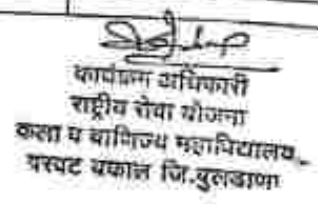 कार्यक्रम अधिकारी
राष्ट्रीय सेवा योजना
कला व वाणिज्य महाविद्यालय,
वरवट बकाल जि.बुलडाणा